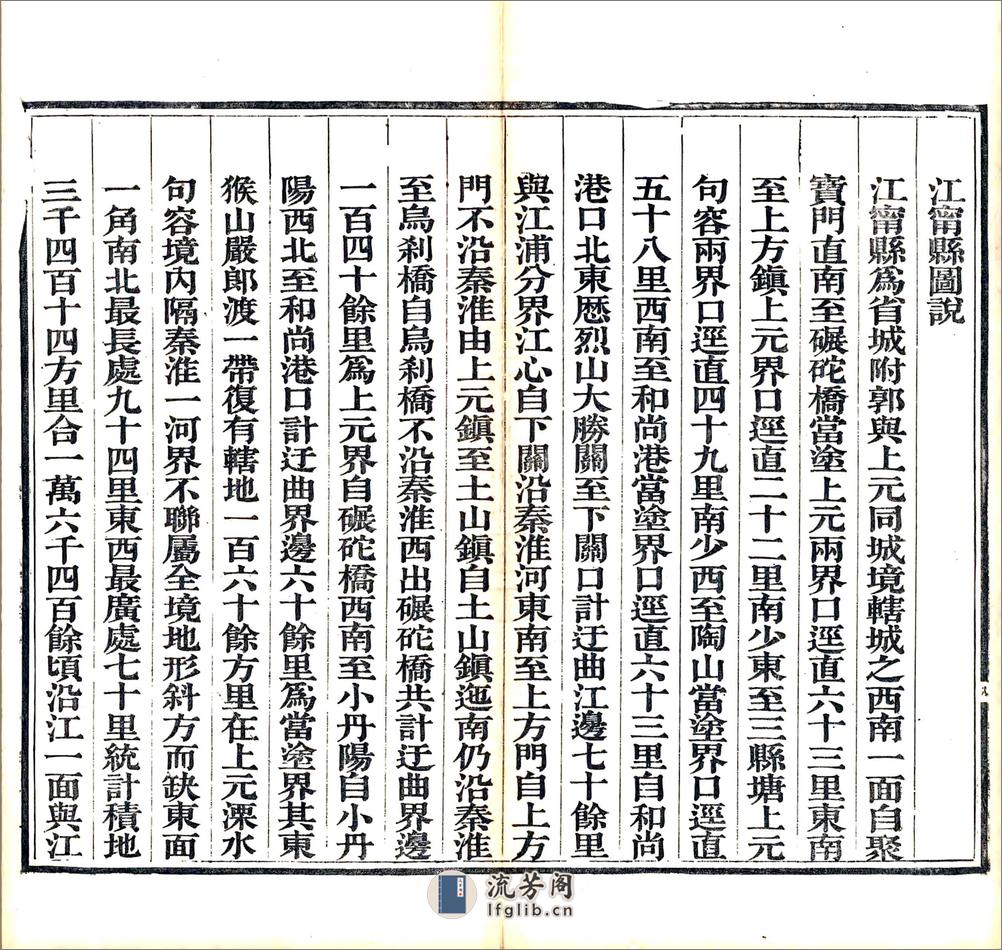 江甯縣圖說
江甯縣爲省城附郭與上元同城境轄城之西南一面自聚
寶門直南至碾砣橋當塗上元兩界口逕直六十三里東南
至上方鎮上元界口逕直二十二里南少東至三縣塘上元
句容兩界口逕直四十九里南少西至陶山當塗界口逕直
五十八里西南至和尚港當塗界口逕直六十三里自和尚
港口北東歷烈山大勝關至下關口計迂曲江邊七十餘里
與江浦分界江心自下關沿秦淮河東南至上方門自上方
門不沿秦淮由上元鎮至土山鎮自土山鎮迤南仍沿秦淮
至烏刹橋自烏刹橋不沿秦淮西出碾砣橋共計迂曲界邊
一百四十餘里爲上元界自碾砣橋西南至小丹陽自小丹
陽西北至和尚港口計迂曲界邊六十餘里爲當塗界其東
猴山嚴郎渡一帶復有轄地一百六十餘方里在上元溧水
句容境內隔秦淮一河界不聯屬全境地形斜方而缺東面
一角南北最長處九十四里東西最廣處七十里統計積地
三千四百十四方里合一萬六千四百餘頃沿江一面與江
九
流芳阁
lfglib.cn